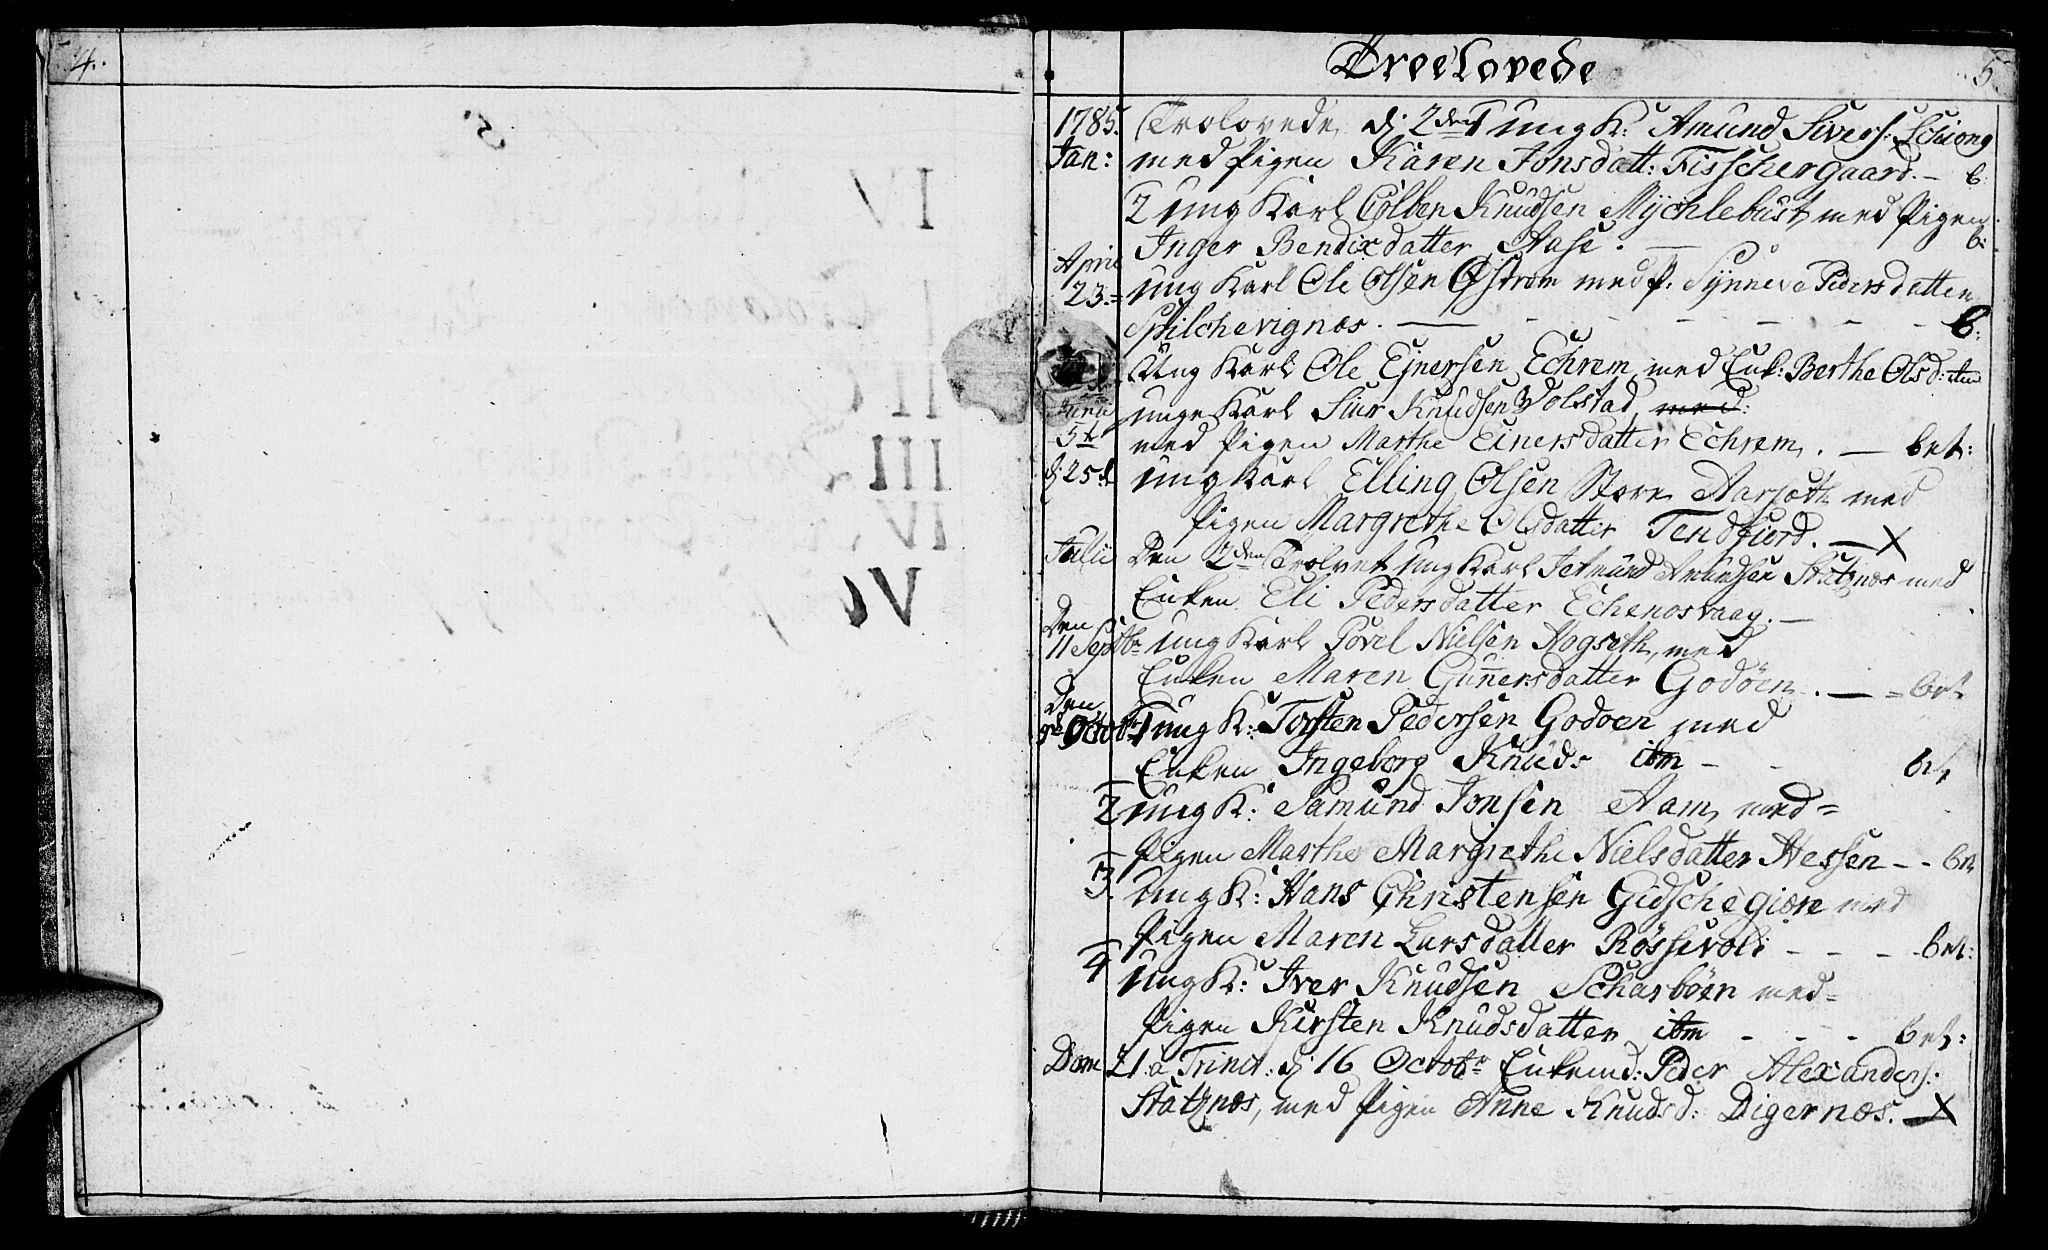 4.
5.
Troelovede
1785. Trolovede, d: 2den 1 ung K: Amund Sivers: Schiong
Jan: med Pigen Karen Jonsdatt: Fisschergaard. — b
2 ung Karl Colben Knudsen Mychlebust, med Pigen
Inger Bendixdatter Aase. — b:
April
23. = ung Karl Ole Olsen Østrem med P. Synneve Pedersdatter
Spilchevignæs. — b:
Ung Karl Ole Ejnersen Echrem, med Enk: Berthe Olsd: itm
Junii unge Karl Siur Knudsen Volstad, med:
5te med Pigen Marthe Einersdatter Echrem. — bet:
d: 25de ung Karl Elling Olsen Store Aarsæth med
Pigen Margrethe Olsdatter Tendfiord. — X
Julii Den 2den Trolovet ung Karl Jetmund Amundsen Statznæs med
Enken Eli Pedersdatter Echenosvaag. —
Den
11 Septbr ung Karl Povel Nielsen Hogseth, med
Enken Maren Gunnersdatter Godöen. — = bet
Den
9de Octobr 1 ung K: Torsten Pedersen Godoen med
Enken Ingeborg Knuds itm - - bet
2 ung K: Samund Jonsen Aam, med=
Pigen Marthe Margrethe Nielsdatter Hessen - - bet
3. ung K: Hans Christensen Gidschegiære med
Pigen Maren Larsdatter Røssevold - - - bet:
4 ung K: Iver Knudsen Scharböen med=
Pigen Kirsten Knudsdatter itm - - - bet:
Dom 21 a Trinit: d: 16 Octobr Enkemd: Peder Alexanders:
Statznæs, med Pigen Anne Knudsd: Digernæs. — X